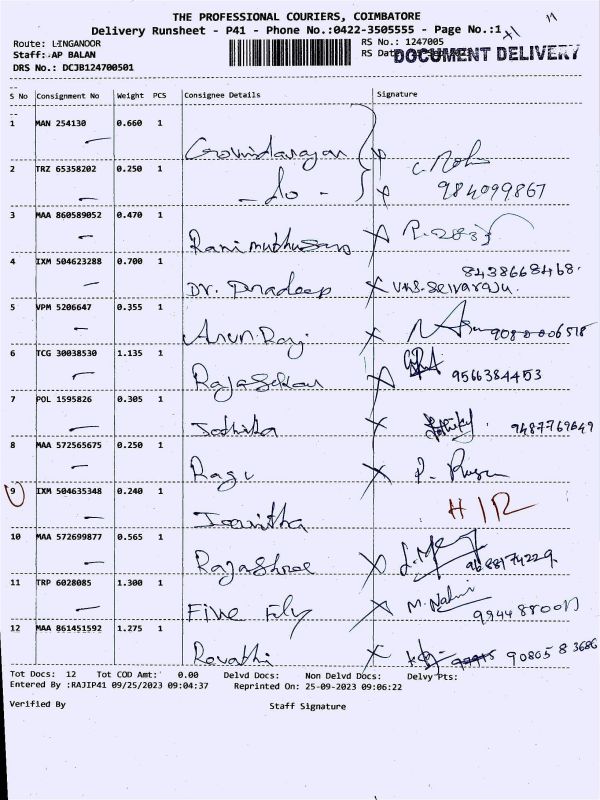 THE PROFESSIONAL COURIERS, COIMBATORE
Delivery Runsheet - P41 - Phone No.:0422-3505555 - Page No.:1
Route: LINGANOOR
RS No.: 1247005
Staff: AP BALAN
RS Dat
DOCUMENT DELIVERY
DRS No.: DCJB124700501
S No Consignment No Weight PCS Consignee Details Signature
1 MAN 254130 0.660 1 Govindarajan
2 TRZ 65358202 0.250 1 - do - 984099867
3 MAA 860589052 0.470 1 Rani muthusamy
4 IXM 504623288 0.700 1 Dr. Pradeep 8438668468.
5 VPM 5206647 0.355 1 Arun Raj
6 TCG 30038530 1.135 1 Rajasekar 9566384453
7 POL 1595826 0.305 1 Jothika 9487769649
8 MAA 572565675 0.250 1 Ragu
9 IXM 504635348 0.240 1 H/R
10 MAA 572699877 0.565 1 Rajashree
11 TRP 6028085 1.300 1 Five
12 MAA 861451592 1.275 1 Revathi 9080583686
Tot Docs: 12 Tot COD Amt: 0.00 Delvd Docs: Non Delvd Docs: Delvy Pts:
Entered By :RAJIP41 09/25/2023 09:04:37 Reprinted On: 25-09-2023 09:06:22
Verified By Staff Signature